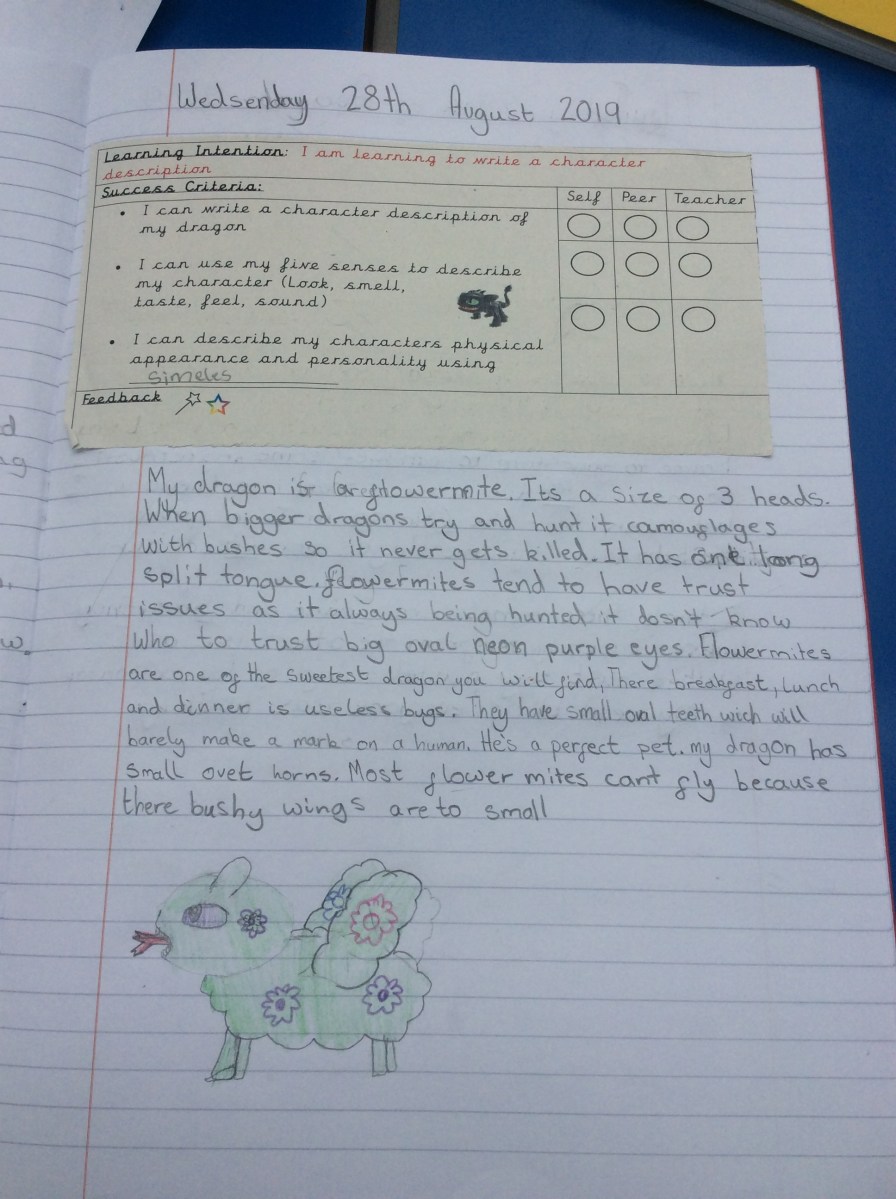 Wedsenday 28th August 2019
Learning Intention: I am learning to write a character
description
Success Criteria:
Self Peer Teacher
• I can write a character description of
my dragon
• I can use my five senses to describe
my character (Look, smell,
taste, feel, sound)
• I can describe my characters physical
appearance and personality using
Simeles
Feedback
My dragon is a flowermite. Its a size of 3 heads.
When bigger dragons try and hunt it camouflages
with bushes so it never gets killed. It has one long
split tongue. flowermites tend to have trust
issues as it always being hunted it dosn't know
who to trust big oval neon purple eyes. Flowermites
are one of the sweetest dragon you will find, There breakfast, lunch
and dinner is useless bugs. They have small oval teeth wich will
barely make a mark on a human. He's a perfect pet. my dragon has
small ovel horns. Most flower mites cant fly because
there bushy wings are to small
d
ng
w.